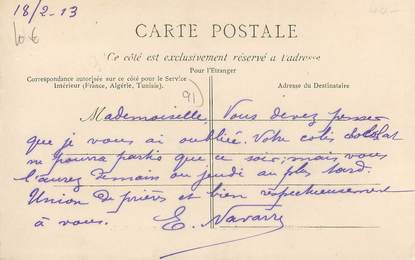 18/2-13
10 €
CARTE POSTALE
Ce côté est exclusivement réservé à l'adresse
Pour l'Étranger
Correspondance autorisée sur ce côté pour le Service
Intérieur (France, Algérie, Tunisie).
Adresse du Destinataire
91
Mademoiselle, Vous devez penser
que je vous ai oubliée. Votre colis
ne pourra partir que ce soir, mais vous
l'aurez demain ou jeudi au plus tard.
Union de prières et bien respectueusement
à vous. E. Navarre